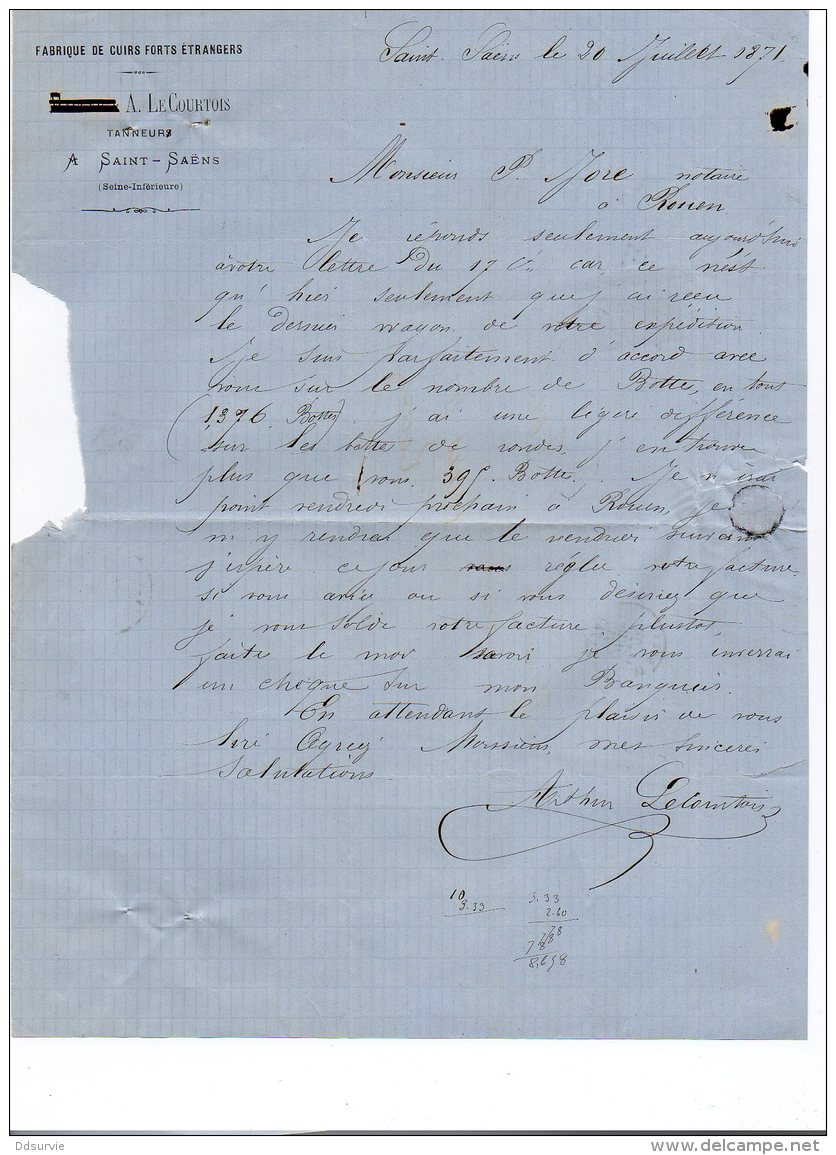 FABRIQUE DE CUIRS FORTS ÉTRANGERS
A. LECOURTOIS
TANNEURS
A SAINT-SAËNS
(Seine-Inférieure)
Saint-Saëns le 20 Juillet 1871.
Monsieur P. notaire
à Rouen
Je réponds seulement aujourd'hui
à votre lettre du 17 Ct. car ce n'est
qu'hier seulement que j'ai reçu
le dernier wagon de votre expédition
Je suis parfaitement d'accord avec
vous sur le nombre de Bottes, en tout
(1,376 Bottes). j'ai une légère différence
sur les botte de rondes, j'en trouve
plus que vous. 395. Bottes. Je n'irai
point vendredi prochain à Rouen, je
m'y rendrai que le vendredi suivant
j'espère ce jour réglé votre facture
si vous aviez ou si vous désiriez que
je vous solde votre facture plustot,
faite le moi savoir je vous enverrai
un chèque sur mon Banquier.
En attendant le plaisir de vous
liré Agréez Monsieur, mes sincères
Salutations
Arthur Lecourtois
10 3.33
3.33 2.60
7 8
7 8
8,658
Ddsurvie
www.delcampe.net